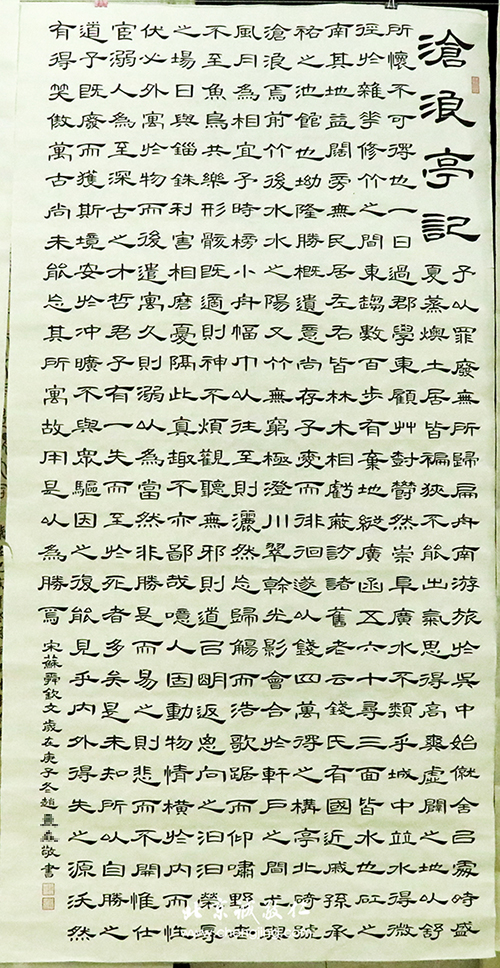 滄浪亭記
予以罪廢無所歸扁舟南游旅於吳中始僦舍以處時盛
夏蒸燠土居皆褊狹不能出氣思得高爽虛闢之地以舒
所懷不可得也一日過郡學東顧艸封鬱然崇阜廣水不類乎城中並水得微
徑於雜花修竹之間東趨數百步有棄地縱廣函五六十尋三面皆水也矼之
南其地益闊旁無民居左右皆林木相虧蔽訪諸舊老云錢氏有國近戚孫承
祐之池館也坳隆勝概遺意尚存予愛而徘徊遂以錢四萬得之構亭北碕號
滄浪焉前竹後水水之陽又竹無窮極澄川翠幹光影會合於軒戶之間尤與
風月為相宜予時榜小舟幅巾以往至則灑然忘歸觴而浩歌踞而仰嘯野老
不至魚鳥共樂形骸既適則神不煩觀聽無邪則道以明返思向之汩汩榮辱
之場日與錙銖利害相磨戛隔此真趣不亦鄙哉噫人固動物情橫於內而性
伏必外寓於物而後遣寓久則溺以為當然非勝是而易之則悲而不開惟仕
宦溺人為至深古之才哲君子有一失而至於死者多矣是未知所以自勝之
道予既廢而獲斯境安於沖曠不與眾驅因之復能見乎內外得失之源沃然
有得笑傲萬古尚未能忘其所寓故用是以為勝焉
宋蘇舜欽文歲在庚子冬趙敬書
北京誠敬仁